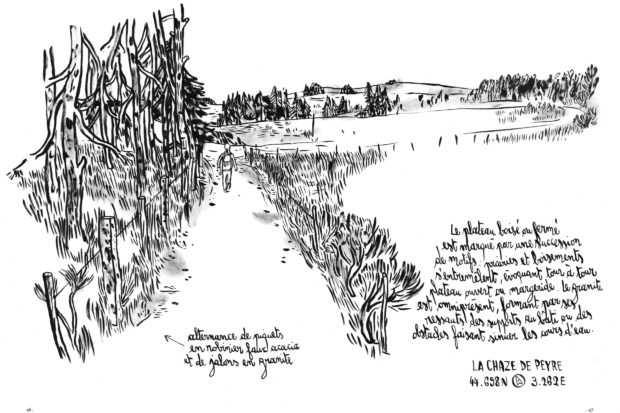 Le plateau boisé ou fermé
est marqué par une succession
de motifs, prairies et boisements
s'entremêlent, évoquant tour à tour
plateau ouvert ou margeride. Le granite
est omniprésent, formant par ses
ressauts des supports au bâti ou des
obstacles faisant sinuer les cours d'eau.
LA CHAZE DE PEYRE
44.698N 3.202E
alternance de piquets
en robinier faux acacia
et de jalons en granite